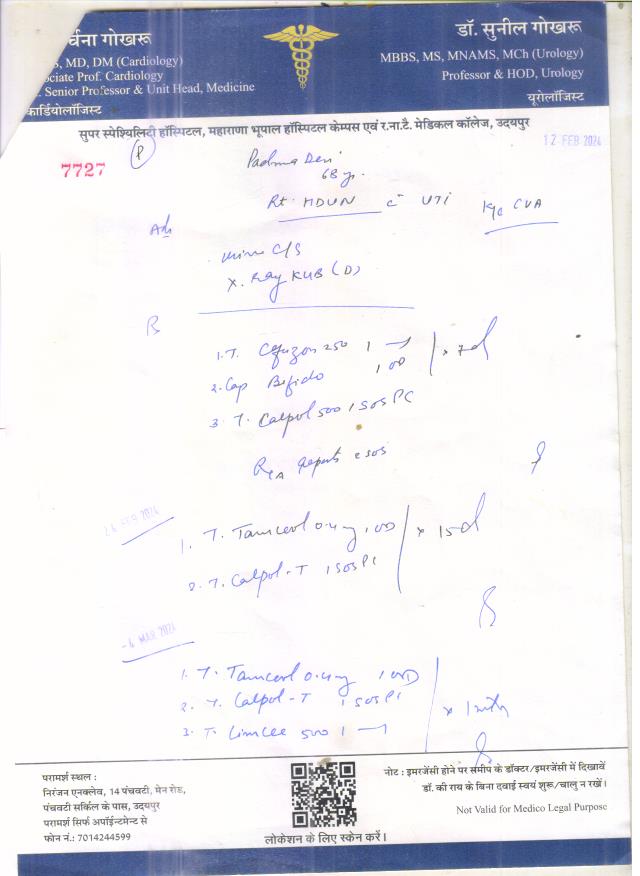 र्चना गोखरू
S, MD, DM (Cardiology)
ociate Prof. Cardiology
Senior Professor & Unit Head, Medicine
कार्डियोलॉजिस्ट
डॉ. सुनील गोखरू
MBBS, MS, MNAMS, MCh (Urology)
Professor & HOD, Urology
यूरोलॉजिस्ट
सुपर स्पेश्यिलिटी हॉस्पिटल, महाराणा भूपाल हॉस्पिटल केम्पस एवं र.ना.टै. मेडिकल कॉलेज, उदयपुर
12 FEB 2024
7727
P
Padma Devi
68 y.
Rt. HDUN c̄ UTI
K/c CVA
Adv
Urine C/S
X. Ray KUB (D)
R
1. T. 250 1
x 7d
2. Cap Bifido 1 OD
3. T. Calpol 500 1 SOS PC
Reports c SOS
24 FEB 2024
1. T. 0.4mg 1 OD
x 15d
2. T. Calpol-T 1 SOS PC
-4 MAR 2024
1. T. 0.4mg 1 OD
2. T. Calpol-T 1 SOS PC
x 1 mth
3. T. Limcee 500 1
परामर्श स्थल :
निरंजन एनक्लेव, 14 पंचवटी, मेन रोड,
पंचवटी सर्किल के पास, उदयपुर
परामर्श सिर्फ अपॉईन्टमेन्ट से
फोन नं.: 7014244599
लोकेशन के लिए स्केन करें।
नोट : इमरजेंसी होने पर समीप के डॉक्टर/इमरजेंसी में दिखावें
डॉ. की राय के बिना दवाई स्वयं शुरू/चालु न रखें।
Not Valid for Medico Legal Purpose